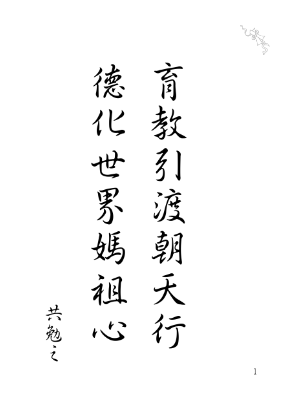 育教引渡朝天行
德化世界媽祖心
共勉之
1